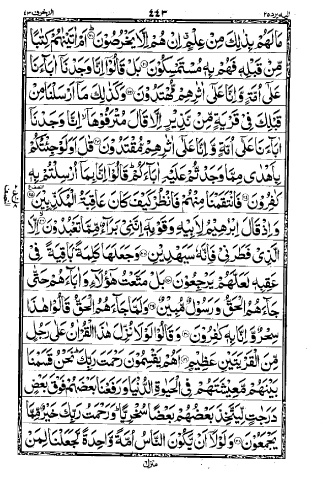 الیه یرد ۲۵ ۴۴۳ الزخرف ۴۳
مَا لَهُمْ بِذٰلِكَ مِنْ عِلْمٍ ۚ اِنْ هُمْ اِلَّا يَخْرُصُوْنَ ۞ اَمْ اٰتَيْنٰهُمْ كِتٰبًا
مِّنْ قَبْلِهٖ فَهُمْ بِهٖ مُسْتَمْسِكُوْنَ ۞ بَلْ قَالُوْٓا اِنَّا وَجَدْنَآ اٰبَآءَنَا
عَلٰٓى اُمَّةٍ وَّاِنَّا عَلٰٓى اٰثٰرِهِمْ مُّهْتَدُوْنَ ۞ وَكَذٰلِكَ مَآ اَرْسَلْنَا مِنْ
قَبْلِكَ فِيْ قَرْيَةٍ مِّنْ نَّذِيْرٍ اِلَّا قَالَ مُتْرَفُوْهَآ ۙ اِنَّا وَجَدْنَآ
اٰبَآءَنَا عَلٰٓى اُمَّةٍ وَّاِنَّا عَلٰٓى اٰثٰرِهِمْ مُّقْتَدُوْنَ ۞ قٰلَ اَوَلَوْ جِئْتُكُمْ
بِاَهْدٰى مِمَّا وَجَدْتُّمْ عَلَيْهِ اٰبَآءَكُمْ ۭ قَالُوْٓا اِنَّا بِمَآ اُرْسِلْتُمْ بِهٖ
كٰفِرُوْنَ ۞ فَانْتَقَمْنَا مِنْهُمْ فَانْظُرْ كَيْفَ كَانَ عَاقِبَةُ الْمُكَذِّبِيْنَ ۞
وَاِذْ قَالَ اِبْرٰهِيْمُ لِاَبِيْهِ وَقَوْمِهٖٓ اِنَّنِيْ بَرَآءٌ مِّمَّا تَعْبُدُوْنَ ۞ اِلَّا
الَّذِيْ فَطَرَنِيْ فَاِنَّهٗ سَيَهْدِيْنِ ۞ وَجَعَلَهَا كَلِمَةًۢ بَاقِيَةً فِيْ
عَقِبِهٖ لَعَلَّهُمْ يَرْجِعُوْنَ ۞ بَلْ مَتَّعْتُ هٰٓؤُلَآءِ وَاٰبَآءَهُمْ حَتّٰى
جَآءَهُمُ الْحَقُّ وَرَسُوْلٌ مُّبِيْنٌ ۞ وَلَمَّا جَآءَهُمُ الْحَقُّ قَالُوْا هٰذَا
سِحْرٌ وَّاِنَّا بِهٖ كٰفِرُوْنَ ۞ وَقَالُوْا لَوْلَا نُزِّلَ هٰذَا الْقُرْاٰنُ عَلٰى رَجُلٍ
مِّنَ الْقَرْيَتَيْنِ عَظِيْمٍ ۞ اَهُمْ يَقْسِمُوْنَ رَحْمَتَ رَبِّكَ ۭ نَحْنُ قَسَمْنَا
بَيْنَهُمْ مَّعِيْشَتَهُمْ فِي الْحَيٰوةِ الدُّنْيَا وَرَفَعْنَا بَعْضَهُمْ فَوْقَ بَعْضٍ
دَرَجٰتٍ لِّيَتَّخِذَ بَعْضُهُمْ بَعْضًا سُخْرِيًّا ۭ وَرَحْمَتُ رَبِّكَ خَيْرٌ مِّمَّا
يَجْمَعُوْنَ ۞ وَلَوْلَآ اَنْ يَّكُوْنَ النَّاسُ اُمَّةً وَّاحِدَةً لَّجَعَلْنَا لِمَنْ
منزل